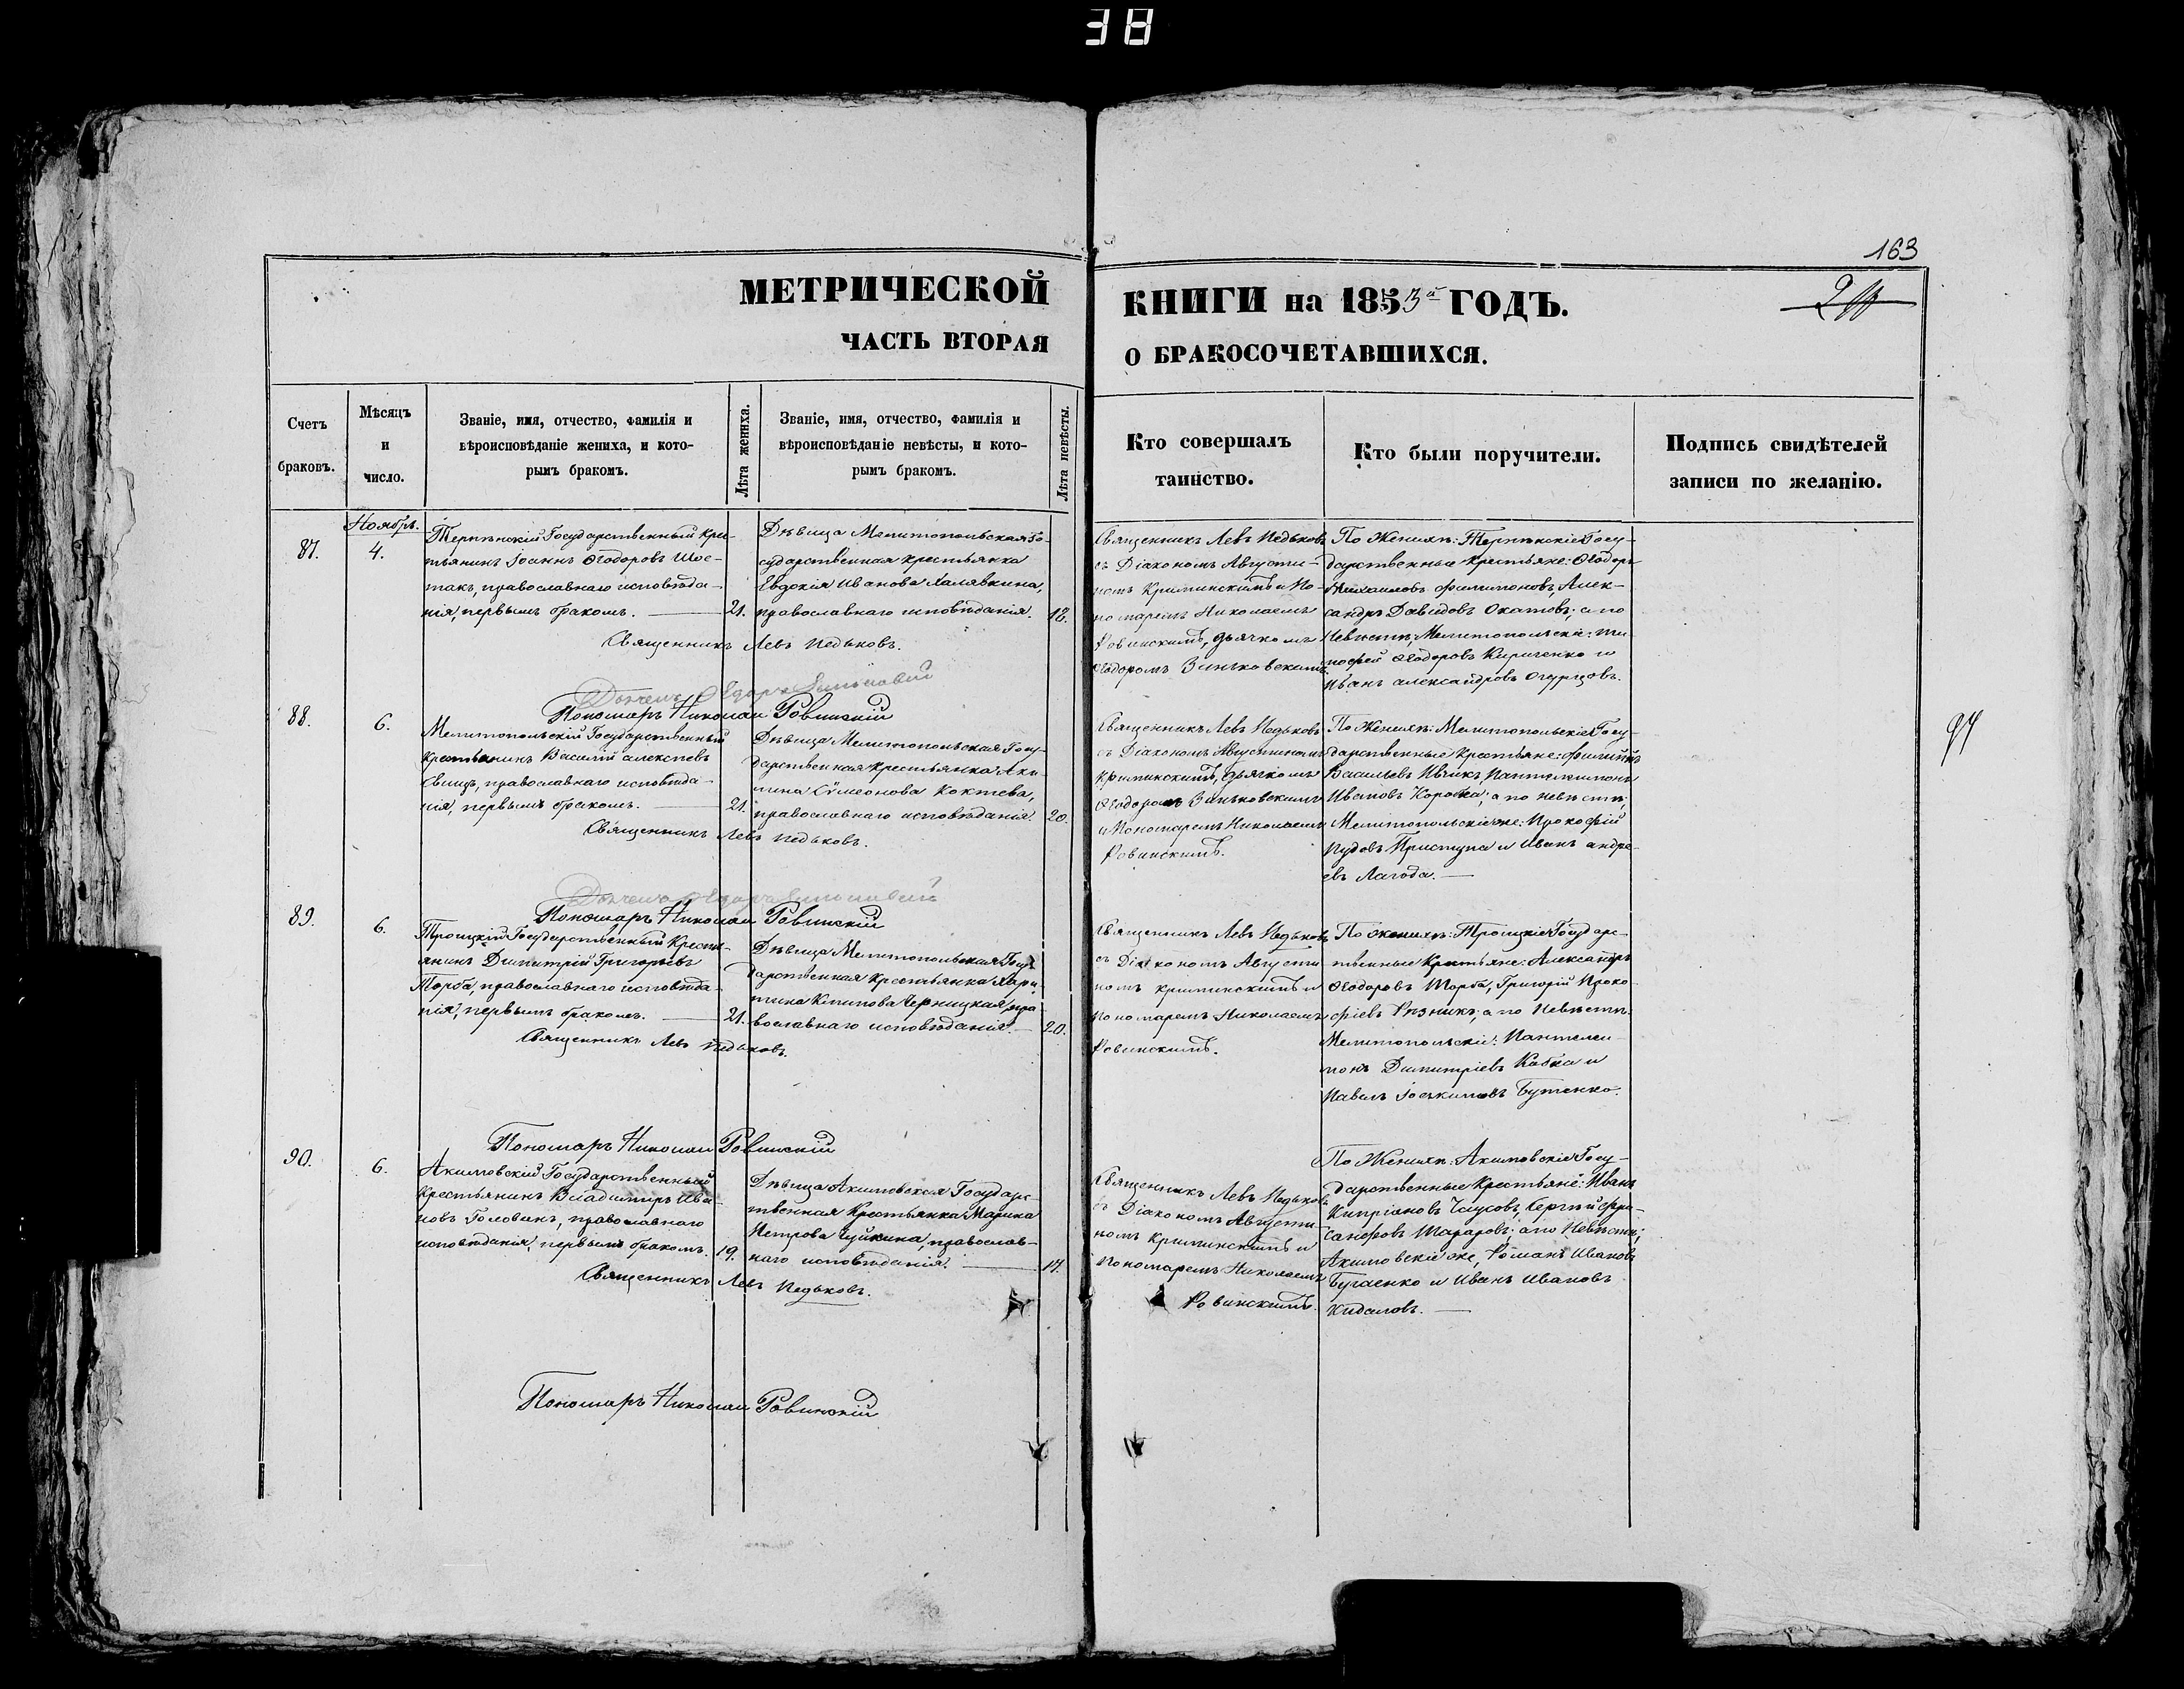 38
163
МЕТРИЧЕСКОЙ
КНИГИ на 1853й ГОДЪ.
ЧАСТЬ ВТОРАЯ
О БРАКОСОЧЕТАВШИХСЯ.
Счетъ браковъ.
Мѣсяцъ и число.
Званіе, имя, отчество, фамилія и
вѣроисповѣданіе жениха, и кото-
рымъ бракомъ.
Лѣта жениха.
Званіе, имя, отчество, фамилія и
вѣроисповѣданіе невѣсты, и кото-
рымъ бракомъ.
Лѣта невѣсты.
Кто совершалъ
таинство.
Кто были поручители.
Подпись свидѣтелей
записи по желанію.
Ноябрь.
87.
4.
Терпѣнскій Государственный Крес-
тьянинъ Іоаннъ Ѳеодоровъ Шос-
такъ, православнаго исповѣда-
нія, первымъ бракомъ.
21.
Дѣвица Мелитопольская Го-
сударственная крестьянка
Евдокія Иванова
православнаго исповѣданія.
18.
Священникъ Левъ Педьковъ.
Священникъ Левъ Педьковъ
съ Діакономъ Августи-
номъ Криминскимъ и По-
номаремъ Николаемъ
Ровинскимъ, дьячкомъ
Ѳеодоромъ Зиньковскимъ.
По Женихѣ: Терпѣнскіе Госу-
дарственные крестьяне: Ѳеодоръ
Михаиловъ Филимоновъ, Алек-
сандръ Давидовъ Окатовъ; а по
Невѣстѣ; Мелитопольскіе: Ти-
мофей Ѳеодоровъ Кириченко и
Иванъ Александровъ Огурцовъ.
Пономарь Николай Ровинскій
88.
6.
Мелитопольскій Государственный
Крестьянинъ Василій Алексѣевъ
православнаго исповѣда-
нія, первымъ бракомъ.
21.
Дѣвица Мелитопольская Госу-
дарственная Крестьянка Аки-
лина Сѵмеонова Коктева,
православнаго исповѣданія.
20.
Священникъ Левъ Педьковъ.
Священникъ Левъ Педьковъ
съ Діакономъ Августиномъ
Криминскимъ, Дьячкомъ
Ѳеодоромъ Зиньковскимъ
и Пономаремъ Николаемъ
Ровинскимъ.
По Женихѣ: Мелитопольскіе Госу-
дарственные Крестьяне:
Васильевъ Ивчикъ Пантелеимонъ
Ивановъ Коробка; а по невѣстѣ;
Мелитопольскіе же: Прокофій
Пудовъ Приступа и Иванъ Андре-
евъ Лагода.
94
Пономарь Николай Ровинскій
89.
6.
Троицкій Государственный Кресть-
янинъ Димитрій Григорьевъ
Торба, православнаго исповѣда-
нія, первымъ бракомъ.
21.
Дѣвица Мелитопольская Госу-
дарственная Крестьянка Хари-
тина Черницкая, пра-
вославнаго исповѣданія.
20.
Священникъ Левъ Педьковъ.
Священникъ Левъ Педьковъ
съ Діакономъ Августи-
номъ Криминскимъ и
Пономаремъ Николаемъ
Ровинскимъ.
По Женихѣ: Троицкіе Государс-
твенные Крестьяне: Александръ
Ѳеодоровъ Торба, Григорій Проко-
фіевъ Рѣзникъ; а по Невѣстѣ:
Мелитопольскіе: Пантелеи-
монъ Димитріевъ Кабка и
Павелъ Іоакимовъ Бутенко.
Пономарь Николай Ровинскій
90.
6.
Акимовскій Государственный
Крестьянинъ Владимиръ Ива-
новъ Головинъ, православнаго
исповѣданія, первымъ бракомъ.
19.
Дѣвица Акимовская Государс-
твенная Крестьянка Марина
Петрова Чуйкина, православ-
наго исповѣданія.
17.
Священникъ Левъ Педьковъ.
Священникъ Левъ Педьковъ
съ Діакономъ Августи-
номъ Криминскимъ и
Пономаремъ Николаемъ
Ровинскимъ.
По Женихѣ: Акимовскіе Госу-
дарственные Крестьяне: Иванъ
Кипріановъ Чаусовъ, Сергѣй Хри-
санфовъ Шараровъ; а по Невѣстѣ;
Акимовскіе же, Романъ Ивановъ
Бугаенко и Иванъ Ивановъ
Кидаловъ.
Пономарь Николай Ровинскій